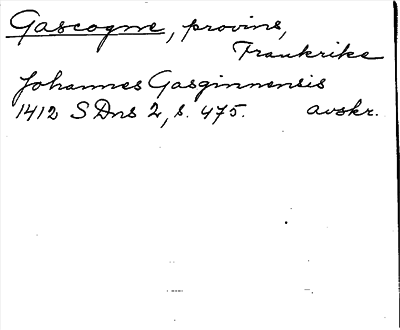 Gascogne, provins,
Frankrike
Johannes Gasginnensis
1412 SDns 2, s. 475. avskr.